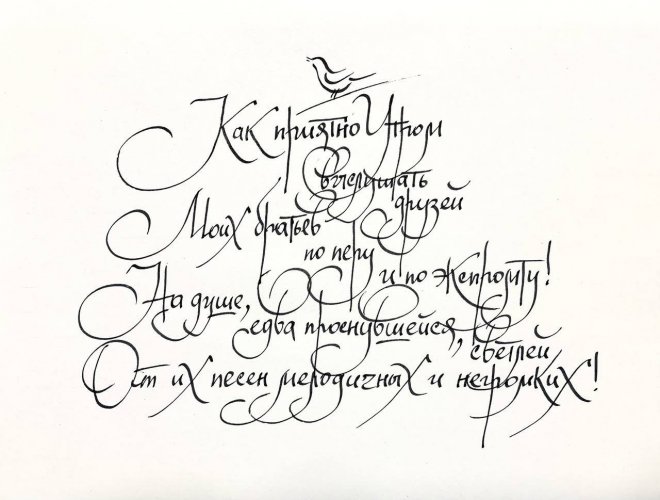 Как приятно Утром
выслушать
друзей
Моих братьев
по перу
и по Жепромту!
На душе,
едва проснувшейся,
светлей
От их песен мелодичных и негромких!